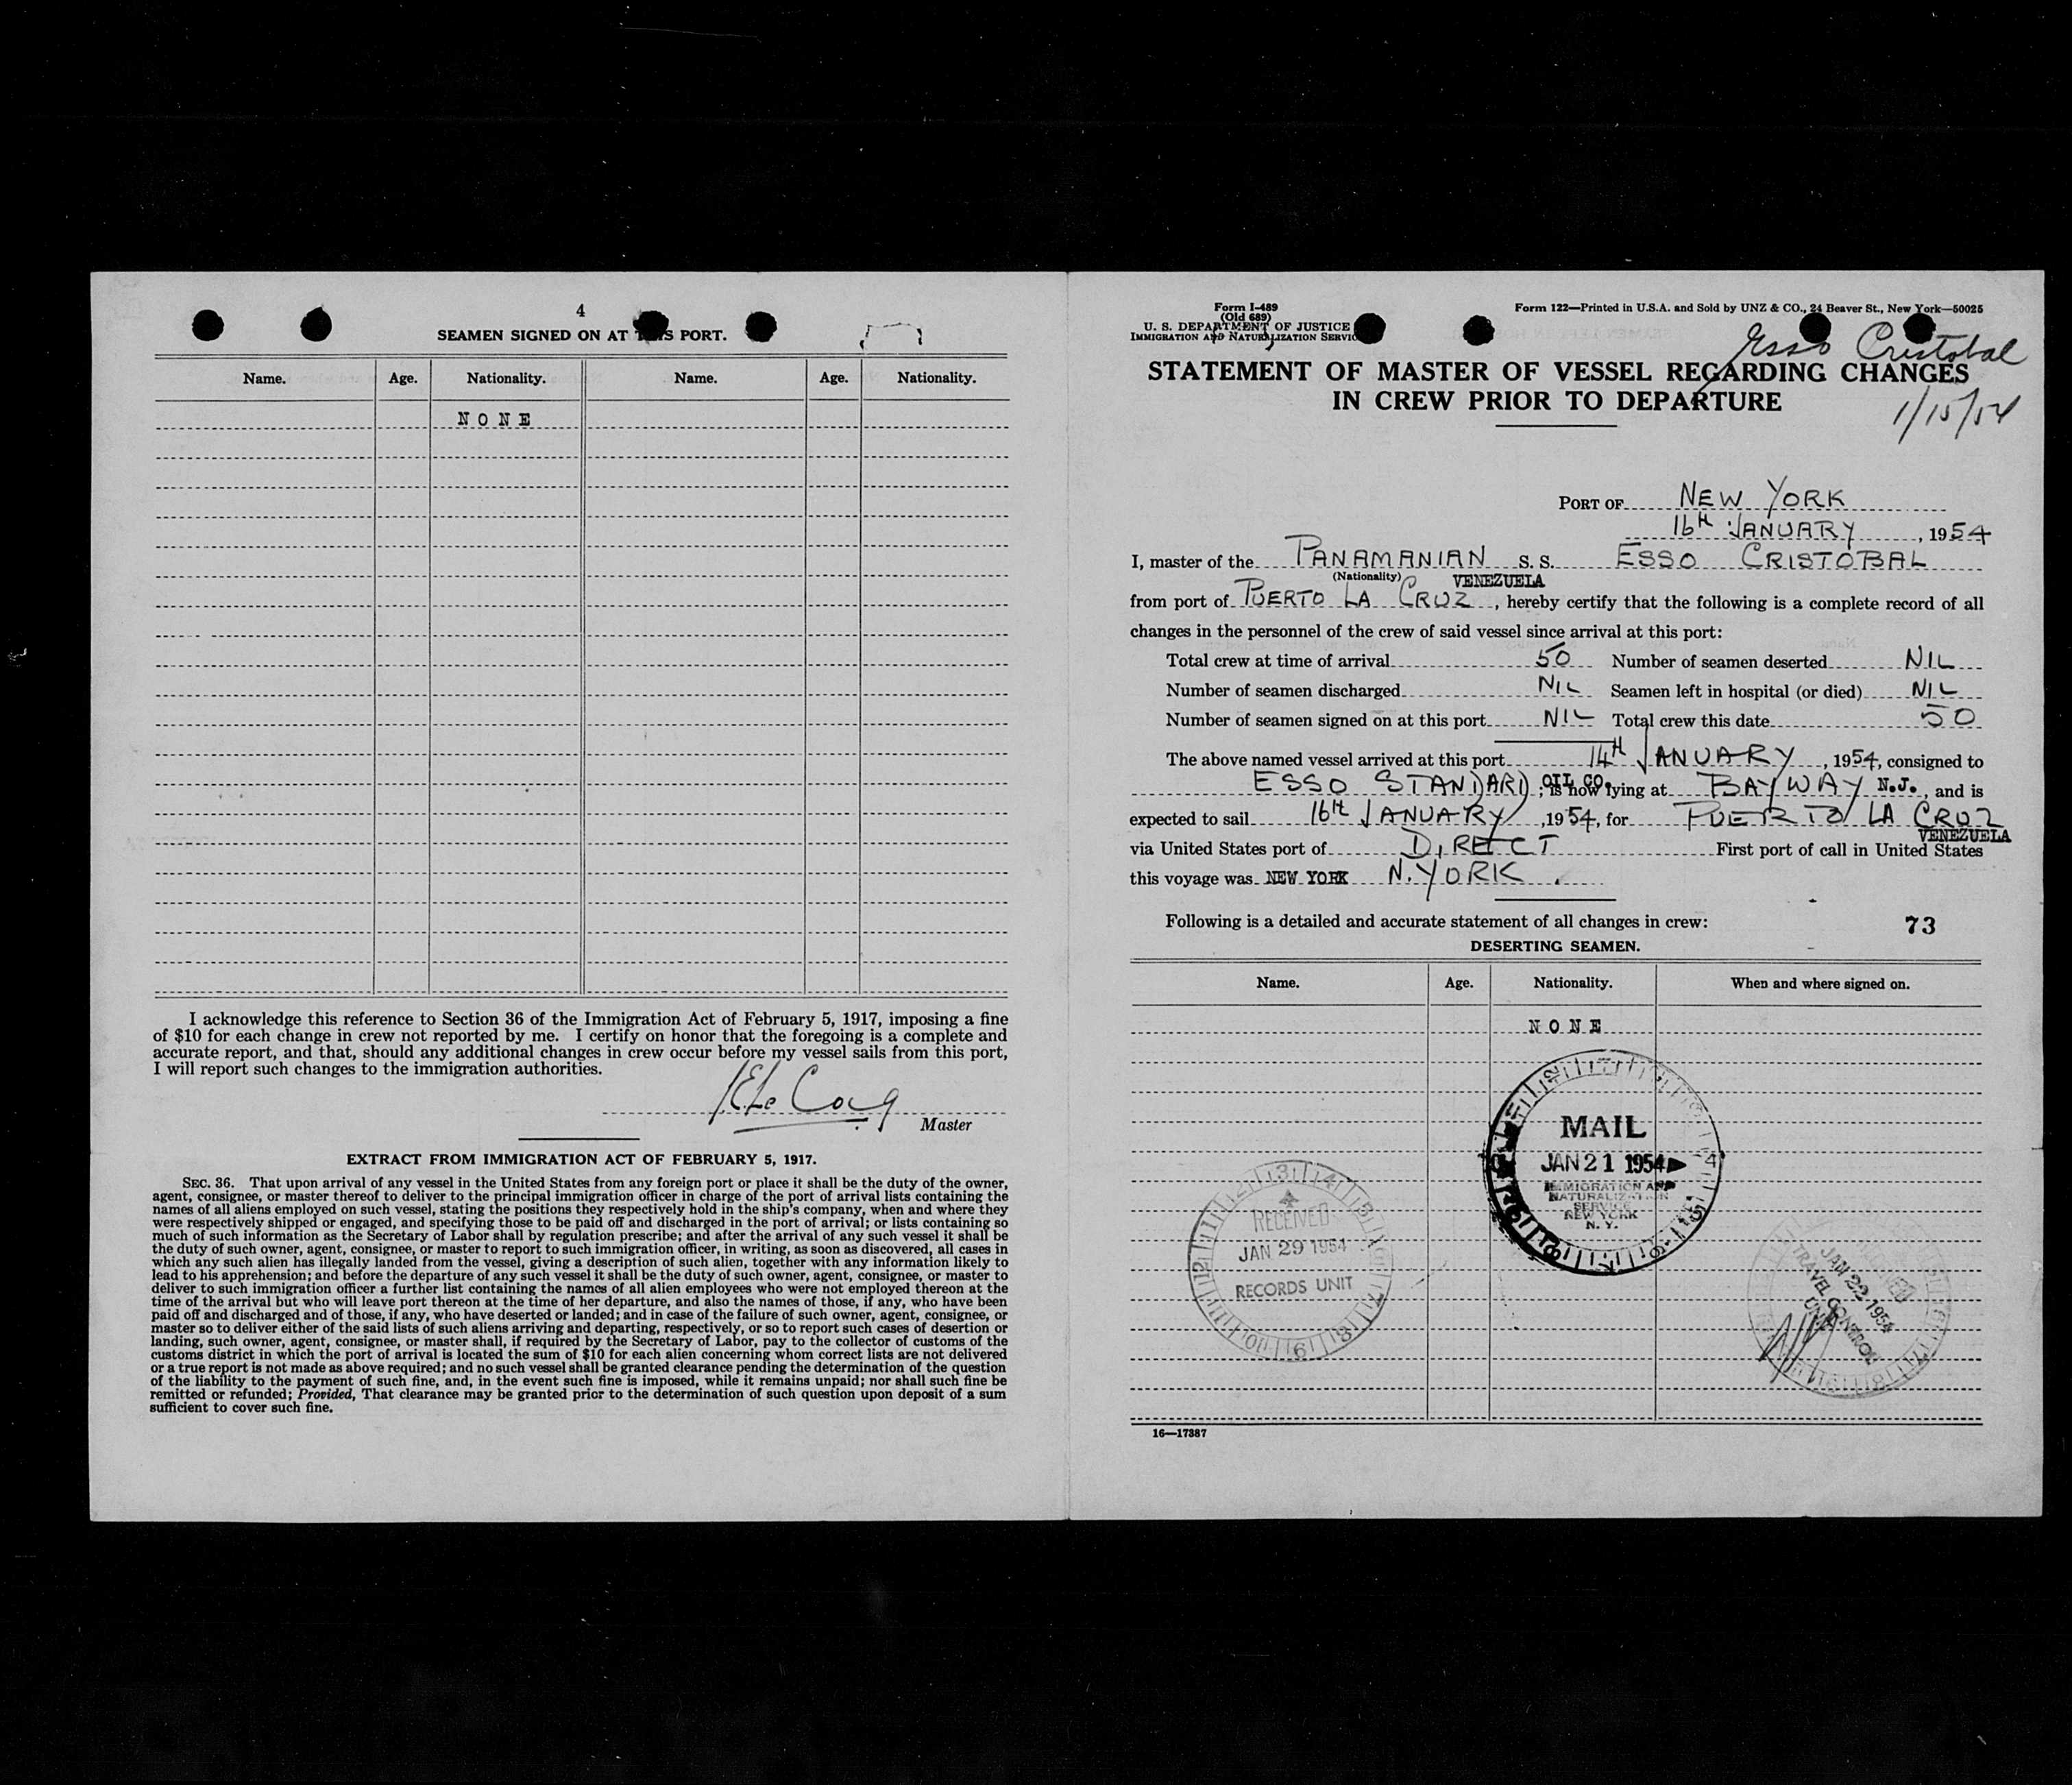 4
SEAMEN SIGNED ON AT THIS PORT.
Name. Age. Nationality. Name. Age. Nationality.
NONE
I acknowledge this reference to Section 36 of the Immigration Act of February 5, 1917, imposing a fine
of $10 for each change in crew not reported by me. I certify on honor that the foregoing is a complete and
accurate report, and that, should any additional changes in crew occur before my vessel sails from this port,
I will report such changes to the immigration authorities.
Master
EXTRACT FROM IMMIGRATION ACT OF FEBRUARY 5, 1917.
SEC. 36. That upon arrival of any vessel in the United States from any foreign port or place it shall be the duty of the owner,
agent, consignee, or master thereof to deliver to the principal immigration officer in charge of the port of arrival lists containing the
names of all aliens employed on such vessel, stating the positions they respectively hold in the ship's company, when and where they
were respectively shipped or engaged, and specifying those to be paid off and discharged in the port of arrival; or lists containing so
much of such information as the Secretary of Labor shall by regulation prescribe; and after the arrival of any such vessel it shall be
the duty of such owner, agent, consignee, or master to report to such immigration officer, in writing, as soon as discovered, all cases in
which any such alien has illegally landed from the vessel, giving a description of such alien, together with any information likely to
lead to his apprehension; and before the departure of any such vessel it shall be the duty of such owner, agent, consignee, or master to
deliver to such immigration officer a further list containing the names of all alien employees who were not employed thereon at the
time of the arrival but who will leave port thereon at the time of her departure, and also the names of those, if any, who have been
paid off and discharged and of those, if any, who have deserted or landed; and in case of the failure of such owner, agent, consignee, or
master so to deliver either of the said lists of such aliens arriving and departing, respectively, or so to report such cases of desertion or
landing, such owner, agent, consignee, or master shall, if required by the Secretary of Labor, pay to the collector of customs of the
customs district in which the port of arrival is located the sum of $10 for each alien concerning whom correct lists are not delivered
or a true report is not made as above required; and no such vessel shall be granted clearance pending the determination of the question
of the liability to the payment of such fine, and, in the event such fine is imposed, while it remains unpaid; nor shall such fine be
remitted or refunded; Provided, That clearance may be granted prior to the determination of such question upon deposit of a sum
sufficient to cover such fine.
Form I-489
(Old 689)
U. S. DEPARTMENT OF JUSTICE
IMMIGRATION AND NATURALIZATION SERVICE
Form 122—Printed in U.S.A. and Sold by UNZ & CO., 24 Beaver St., New York—50025
Esso Cristobal
1/15/54
STATEMENT OF MASTER OF VESSEL REGARDING CHANGES
IN CREW PRIOR TO DEPARTURE
PORT OF NEW YORK
16TH JANUARY, 1954
I, master of the PANAMANIAN S. S. ESSO CRISTOBAL
(Nationality) VENEZUELA
from port of PUERTO LA CRUZ, hereby certify that the following is a complete record of all
changes in the personnel of the crew of said vessel since arrival at this port:
Total crew at time of arrival 50 Number of seamen deserted NIL
Number of seamen discharged NIL Seamen left in hospital (or died) NIL
Number of seamen signed on at this port NIL Total crew this date 50
The above named vessel arrived at this port 14TH JANUARY, 1954, consigned to
ESSO STANDARD OIL CO.; is now lying at BAYWAY N.J., and is
expected to sail 16TH JANUARY, 1954, for PUERTO LA CRUZ
VENEZUELA
via United States port of DIRECT First port of call in United States
this voyage was NEW YORK N. YORK.
Following is a detailed and accurate statement of all changes in crew: 73
DESERTING SEAMEN.
Name. Age. Nationality. When and where signed on.
NONE
MAIL
JAN 21 1954
IMMIGRATION AND
NATURALIZATION
SERVICE
NEW YORK
N. Y.
RECEIVED
JAN 29 1954
RECORDS UNIT
JAN 22 1954
TRAVEL CONTROL
UNIT
16—17387